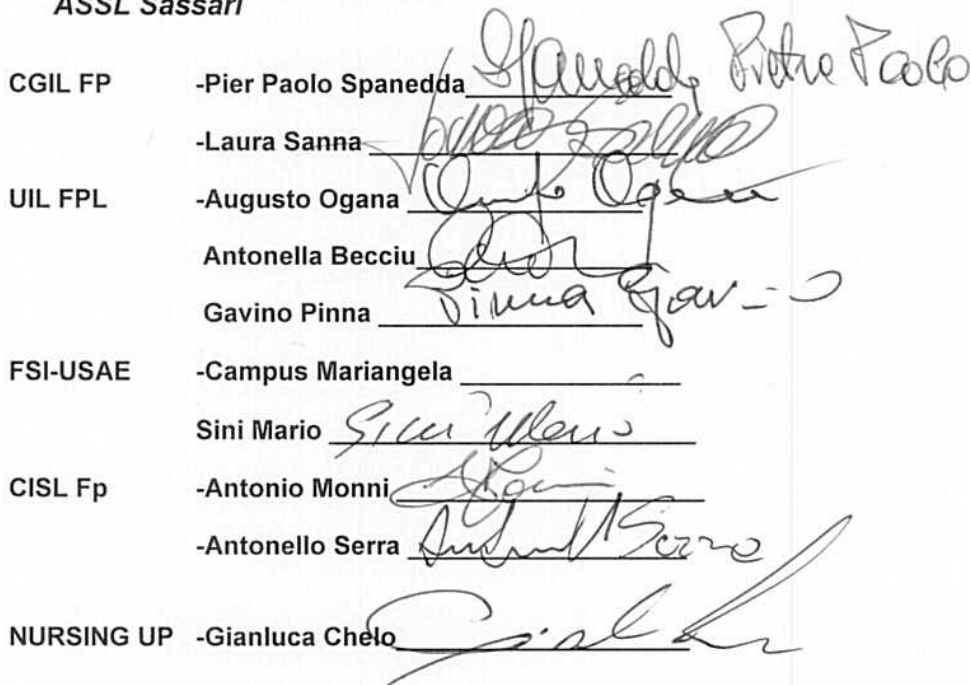 ASSL Sassari
CGIL FP -Pier Paolo Spanedda Spanedda Pietro Paolo
-Laura Sanna
UIL FPL -Augusto Ogana Ogana
Antonella Becciu
Gavino Pinna Pinna Gavino
FSI-USAE -Campus Mariangela
Sini Mario Sini Mario
CISL Fp -Antonio Monni
-Antonello Serra Antonello Serra
NURSING UP -Gianluca Chelo